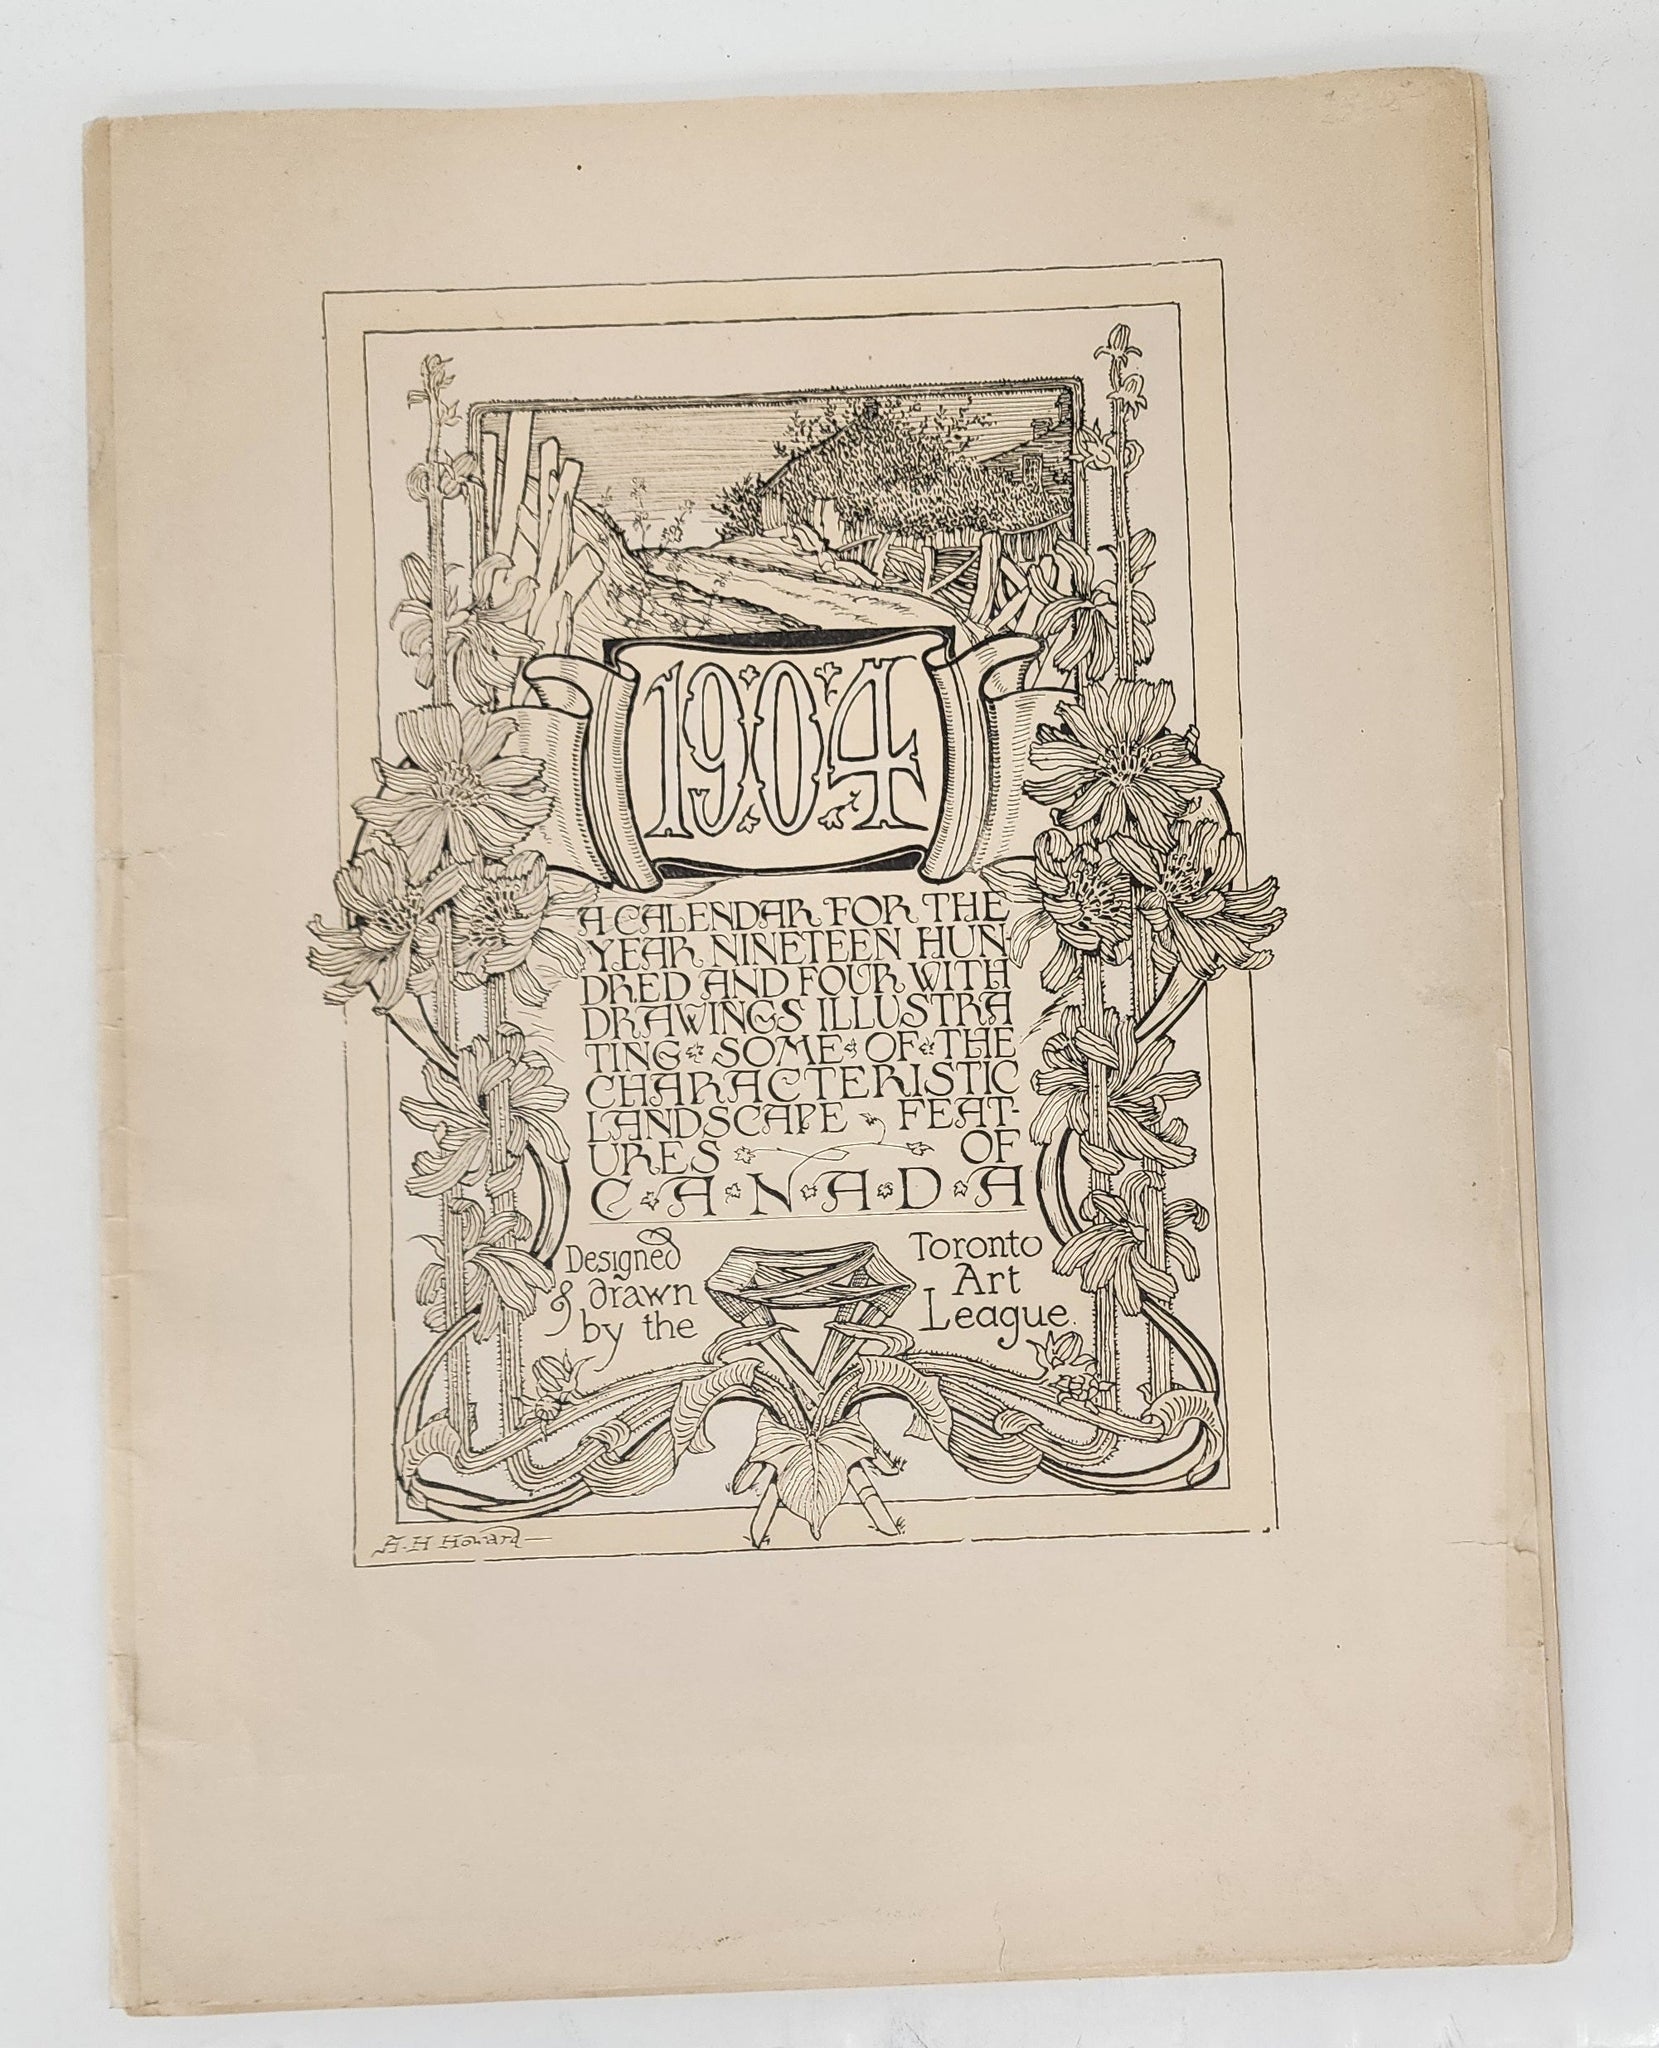 1904
A CALENDAR FOR THE
YEAR NINETEEN HUN-
DRED AND FOUR WITH
DRAWINGS ILLUSTRA
TING SOME OF THE
CHARACTERISTIC
LANDSCAPE FEAT-
URES OF
C·A·N·A·D·A
Designed
& drawn
by the
Toronto
Art
League.
A. H. Howard